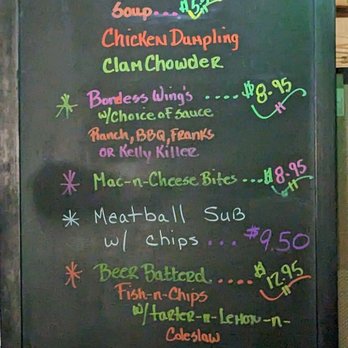 Soup...
Chicken Dumpling
Clam Chowder
* Bonless Wing's .... $8.95
w/Choice of Sauce
Ranch, BBQ, Franks
or Kelly Killer
* Mac-n-Cheese Bites ... $8.95
* Meatball Sub
w/ chips ... $9.50
* Beer Batterd ..... $12.95
Fish-n-Chips
w/tarter-n-Lemon-n-
Coleslaw